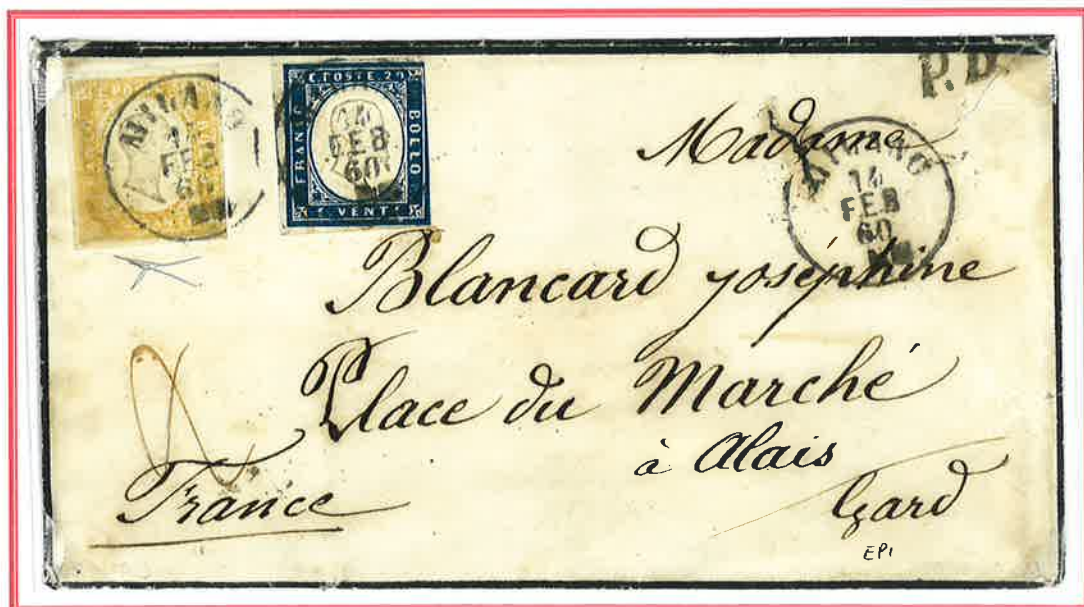 P.D.
MILANO
14
FEB
60
C. POSTE. 20
FRANCO
BOLLO
CENT
14
FEB
60
MILANO
14
FEB
60
Madame
Blancard Joséphine
Place du Marché
à Alais
Gard
France
EPI